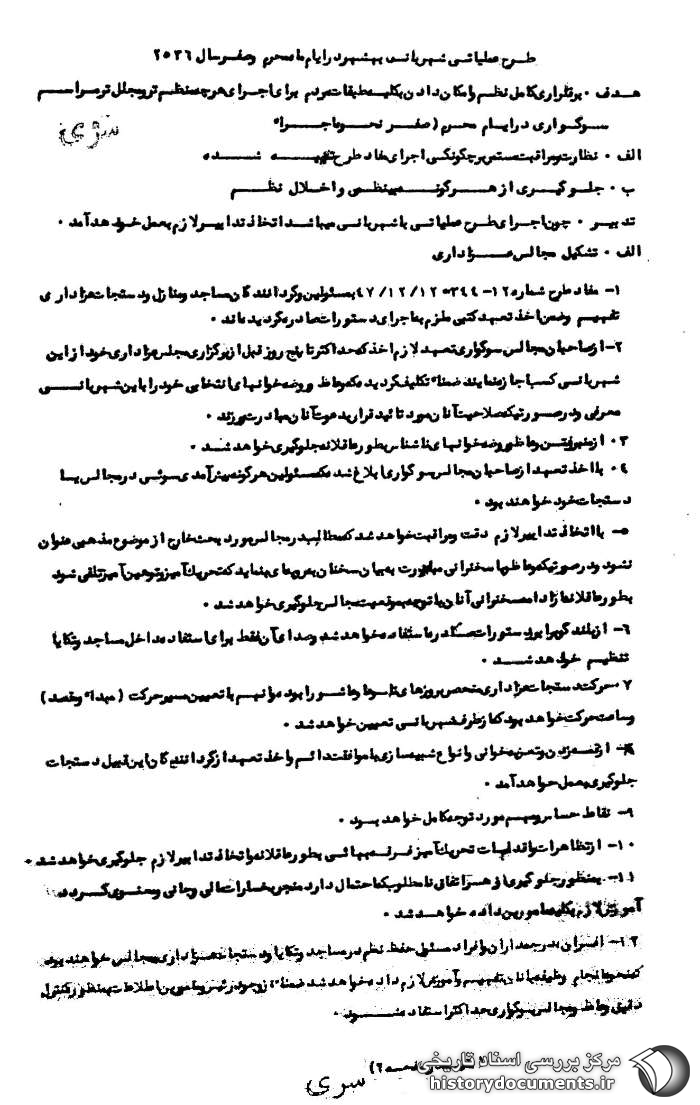 طرح عملیاتی شهربانی بهشهر در ایام ماه محرم و صفر سال ۲۵۳۶
هدف ۰ برقراری کامل نظم و امکان دادن به کلیه طبقات مردم برای اجرای هرچه منظم تر و مجلل تر مراسم
سوگواری در ایام محرم (صفر نحوه اجرا"
سری
الف ۰ نظارت و مراقبت مستمر بر چگونگی اجرای مفاد طرح تهیه شده
ب ۰ جلوگیری از هرگونه بینظمی و اخلال نظم
تدبیر ۰ چون اجرای طرح عملیاتی با شهربانی میباشد اتخاذ تدابیر لازم بعمل خواهد آمد ۰
الف ۰ تشکیل مجالس عزاداری
۱- مفاد طرح شماره ۱۲-۵۳۴۴ ۴۷/۱۲/۱۲ به مسئولین و گردانندگان مساجد و منازل و دستجات عزاداری
تفهیم و ضمن اخذ تعهد کتبی ملزم به اجرای دستورات صادره گردیده‌اند ۰
۲- از صاحبان مجالس سوگواری تعهد لازم اخذ که حداکثر تا پنج روز قبل از برگزاری مجلس عزاداری خود از این
شهربانی کسب اجازه نمایند ضمنا" تکلیف گردیده که وعاظ و روضه خوانهای انتخابی خود را باین شهربانی
معرفی و در صورتیکه صلاحیت آنان مورد تائید قرار گیرد به دعوت آنان مبادرت ورزند ۰
۳ ۰ از منبر رفتن وعاظ و روضه خوانهای ناشناس بطور عاقلانه جلوگیری خواهد شد ۰
۴ ۰ با اخذ تعهد از صاحبان مجالس سوگواری ابلاغ شد که مسئولین هرگونه پیش‌آمدی سوئی در مجالس یا
دستجات خود خواهند بود ۰
۵- با اتخاذ تدابیر لازم دقت و مراقبت خواهد شد که مطالبی در مجالس مورد بحث خارج از موضوع مذهبی عنوان
نشود و در صورتیکه وعاظ با سخنرانی مبادرت به بیان سخنان بی‌رویه‌ای بنماید که تحریک‌آمیز و توهین‌آمیز تلقی شود
بطور عاقلانه از ادامه سخنرانی آنان با توجه به موقعیت مجالس جلوگیری خواهد شد ۰
۶- از بلندگو برابر دستورات صادره استفاده خواهد شد و صدای آن فقط برای استفاده داخل مساجد و تکایا
تنظیم خواهد شد ۰
۷ - حرکت دستجات عزاداری منحصر بروزهای تاسوعا و عاشورا بوده توانیم با تعیین مسیر حرکت (مبداء و مقصد)
و ساعت حرکت خواهد بود که از طرف شهربانی تعیین خواهد شد ۰
۸- از قمه زدن و تعزیه خوانی و انواع شبیه سازی با موافقت دائم و اخذ تعهد از گردانندگان این قبیل دستجات
جلوگیری بعمل خواهد آمد ۰
۹- نقاط حساس و مهم مورد توجه کامل خواهد بود ۰
۱۰- از تظاهرات و اقدامات تحریک‌آمیز فرقه بهائی بطور عاقلانه و اتخاذ تدابیر لازم جلوگیری خواهد شد ۰
۱۱- بمنظور جلوگیری از هر اتفاق نامطلوب که احتمال دارد منجر بخسارات مالی و جانی و معنوی گردد
آموزش لازم بکلیه مامورین داده خواهد شد ۰
۱۲- افسران و درجه‌داران و افراد مسئول حفظ نظم در مساجد و تکایا و دستجات عزاداری و مجالس خواهند بود
که نحوه انجام وظیفه بآنان تفهیم و آموزش لازم داده خواهد شد ضمنا" از وجود رئیس و مامورین اطلاعات بمنظور کنترل
دقیق وعاظ و مجالس سوگواری حداکثر استفاده میشود ۰
سری
مرکز بررسی اسناد تاریخی
historydocuments.ir